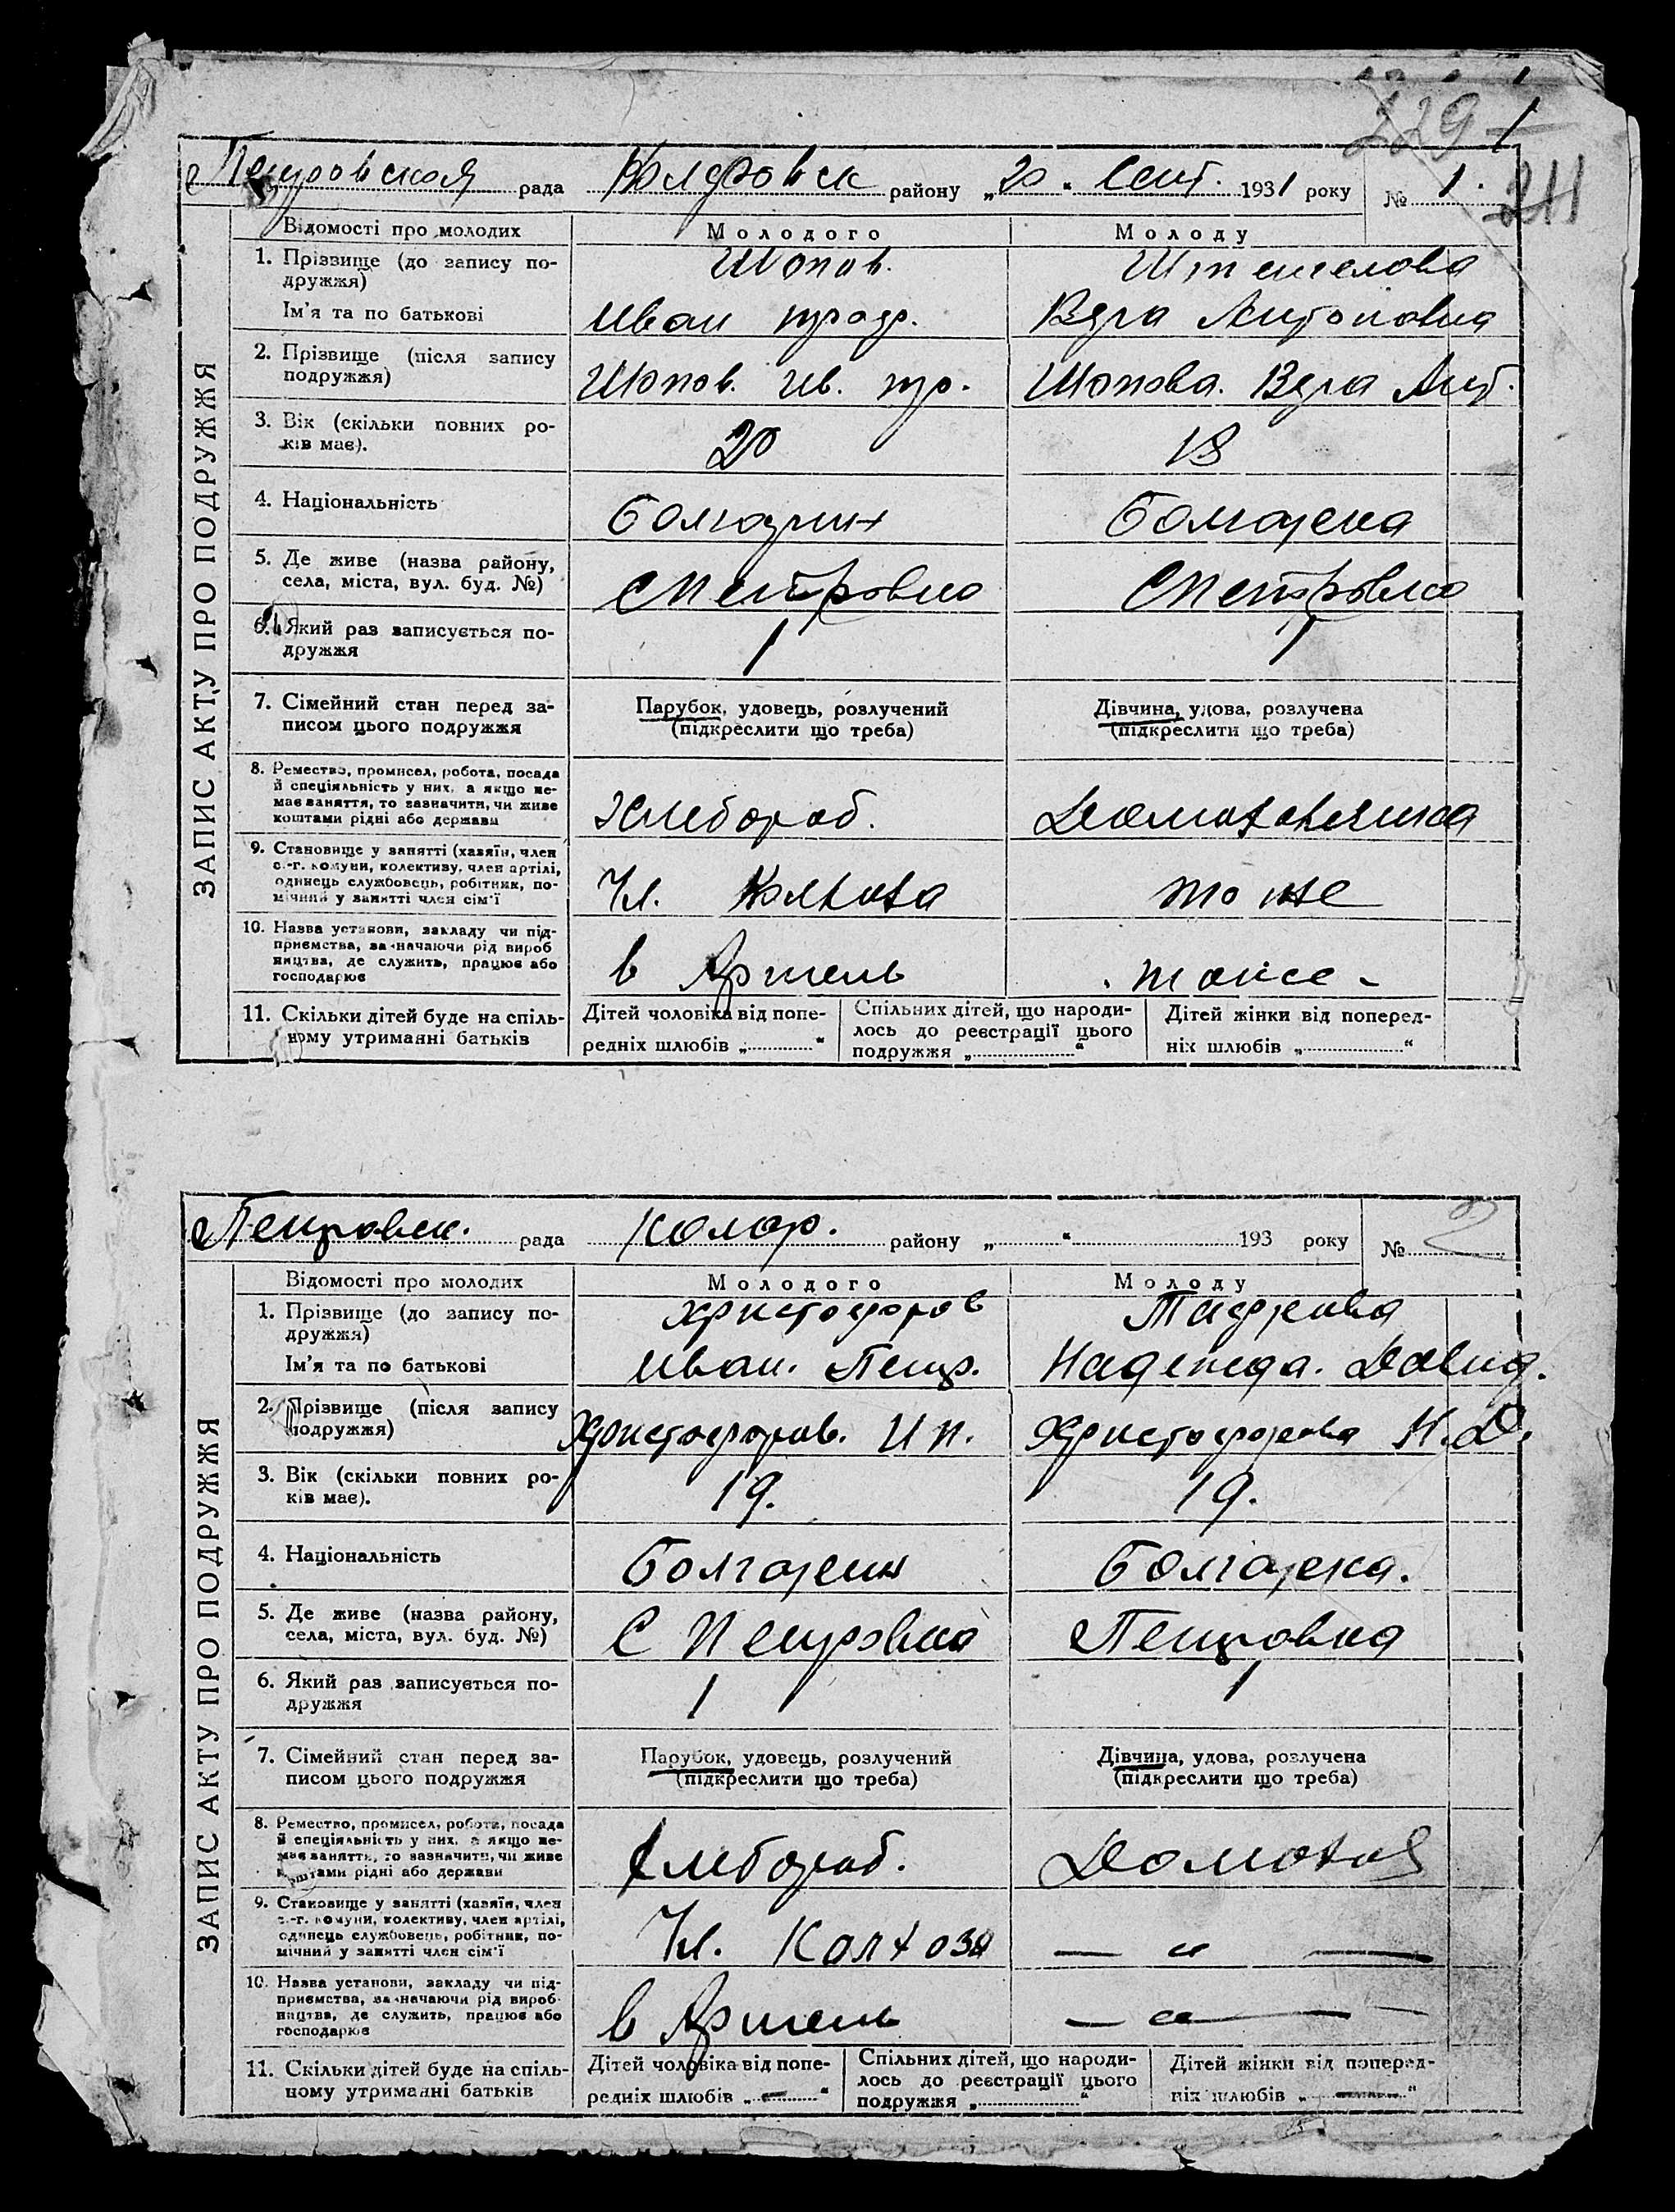 229 1
241
Петровская рада Коларовск району „20" Сент. 1931 року № 1.
ЗАПИС АКТУ ПРО ПОДРУЖЖЯ
Відомості про молодих Молодого Молоду
1. Прізвище (до запису по-
дружжя)
Шопов.
Ім'я та по батькові Иван Вера Антоновна
2. Прізвище (після запису
подружжя)
Шопов. Ив. Шопова. Вера Ант.
3. Вік (скільки повних ро-
ків має).
20 18
4. Національність Болгарин Болгарка
5. Де живе (назва району,
села, міста, вул. буд. №)
С Петровка С Петровка
6. Який раз записується по-
дружжя
1 1
7. Сімейний стан перед за-
писом цього подружжя
Парубок, удовець, розлучений
(підкреслити що треба)
Дівчина, удова, розлучена
(підкреслити що треба)
8. Ремество, промисел, робота, посада
й спеціяльність у них, а якщо не-
має заняття, то зазначити, чи живе
коштами рідні або держави
Хлебороб. Домохозяйка
9. Становище у занятті (хазяїн, член
с.-г. комуни, колективу, член артілі,
одинець службовець, робітник, по-
мічний у занятті член сім'ї
Чл. Колхоза то же
10. Назва установи, закладу чи під-
приємства, зазначаючи рід вироб
ництва, де служить, працює або
господарює
в Артель тоже -
11. Скільки дітей буде на спіль-
ному утриманні батьків
Дітей чоловіка від попе-
редніх шлюбів „ "
Спільних дітей, що народи-
лось до реєстрації цього
подружжя „ "
Дітей жінки від поперед-
ніх шлюбів „ "
Петровск. рада Колар. району „ " 193 року № 2
ЗАПИС АКТУ ПРО ПОДРУЖЖЯ
Відомості про молодих Молодого Молоду
1. Прізвище (до запису по-
дружжя)
Христофоров
Ім'я та по батькові Иван. Петр. Надежда. Давид.
2. Прізвище (після запису
подружжя)
Христофоров. И П. Христофорова Н. Д.
3. Вік (скільки повних ро-
ків має).
19. 19.
4. Національність Болгарин Болгарка.
5. Де живе (назва району,
села, міста, вул. буд. №)
С Петровка Петровка
6. Який раз записується по-
дружжя
1 1
7. Сімейний стан перед за-
писом цього подружжя
Парубок, удовець, розлучений
(підкреслити що треба)
Дівчина, удова, розлучена
(підкреслити що треба)
8. Ремество, промисел, робота, посада
й спеціяльність у них, а якщо не-
має заняття, то зазначити, чи живе
коштами рідні або держави
Хлебороб. Домохоз
9. Становище у занятті (хазяїн, член
с.-г. комуни, колективу, член артілі,
одинець службовець, робітник, по-
мічний у занятті член сім'ї
Чл. Колхоза — „ —
10. Назва установи, закладу чи під-
приємства, зазначаючи рід вироб-
ництва, де служить, працює або
господарює
в Артель — „ —
11. Скільки дітей буде на спіль-
ному утриманні батьків
Дітей чоловіка від попе-
редніх шлюбів „ — "
Спільних дітей, що народи-
лось до реєстрації цього
подружжя „ "
Дітей жінки від поперед-
ніх шлюбів „ — "